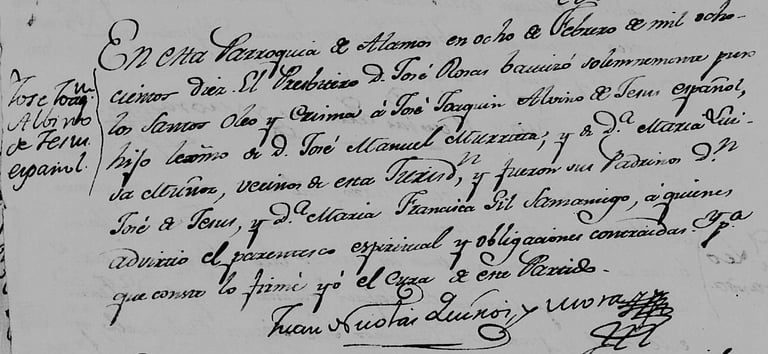 Jose Joaq.n
Albino
de Jesus
español.
En esta Parroquia de Alamos en ocho de Febrero de mil ocho-
cientos diez. El Presbitero D. José Rosas bautizó solemnemente puso
los Santos Oleo y Crisma á José Joaquin Alvino de Jesus español,
hijo lexmo de D. José Manuel Murrieta, y de D.ª Maria Lui-
sa Muñoz, vecinos de esta Jurisd.n, y fueron sus Padrinos D.n
José de Jesus, y D.ª Maria Francisca Gil Samaniego, á quienes
advirtio el parentesco espiritual y obligaciones contraidas. Y p.ª
que conste lo firmé yó el Cura de este Partido.
Juan Nicolas Quiros, y Mora